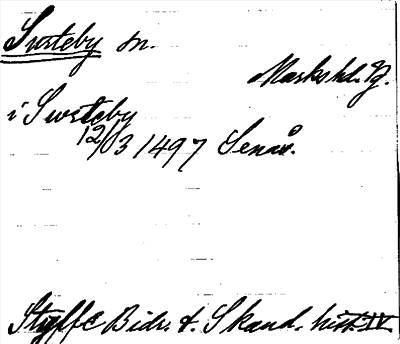 Surteby sn.
Markshd. Vg.
i Surteby
12/3 1497 Senav.
Styffe Bidr. t. Skand. hist. IV.